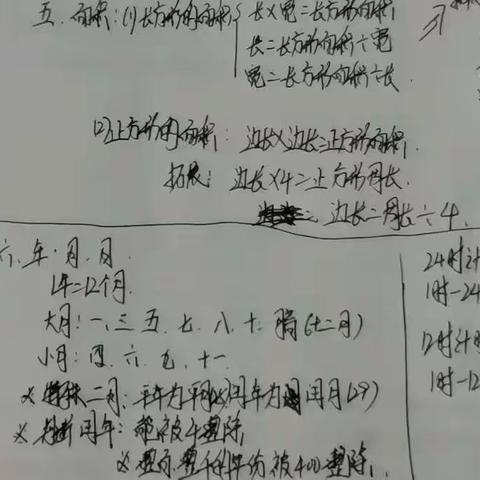 五、面积:(1)长方形的面积{ 长×宽=长方形面积
长=长方形面积÷宽
宽=长方形面积÷长.
(2)正方形的面积: 边长×边长=正方形面积.
拓展: 边长×4=正方形周长.
边长=周长÷4.
六、年、月、日.
1年=12个月.
大月:一、三、五、七、八、十、腊(十二月)
小月:四、六、九、十一
※特殊二月:平年为平月(28)闰年为闰月(29)
※判断闰年: 能被4整除,
※整百整千的年份被400整除.
24时计
1时-24
12时计时
1时-12